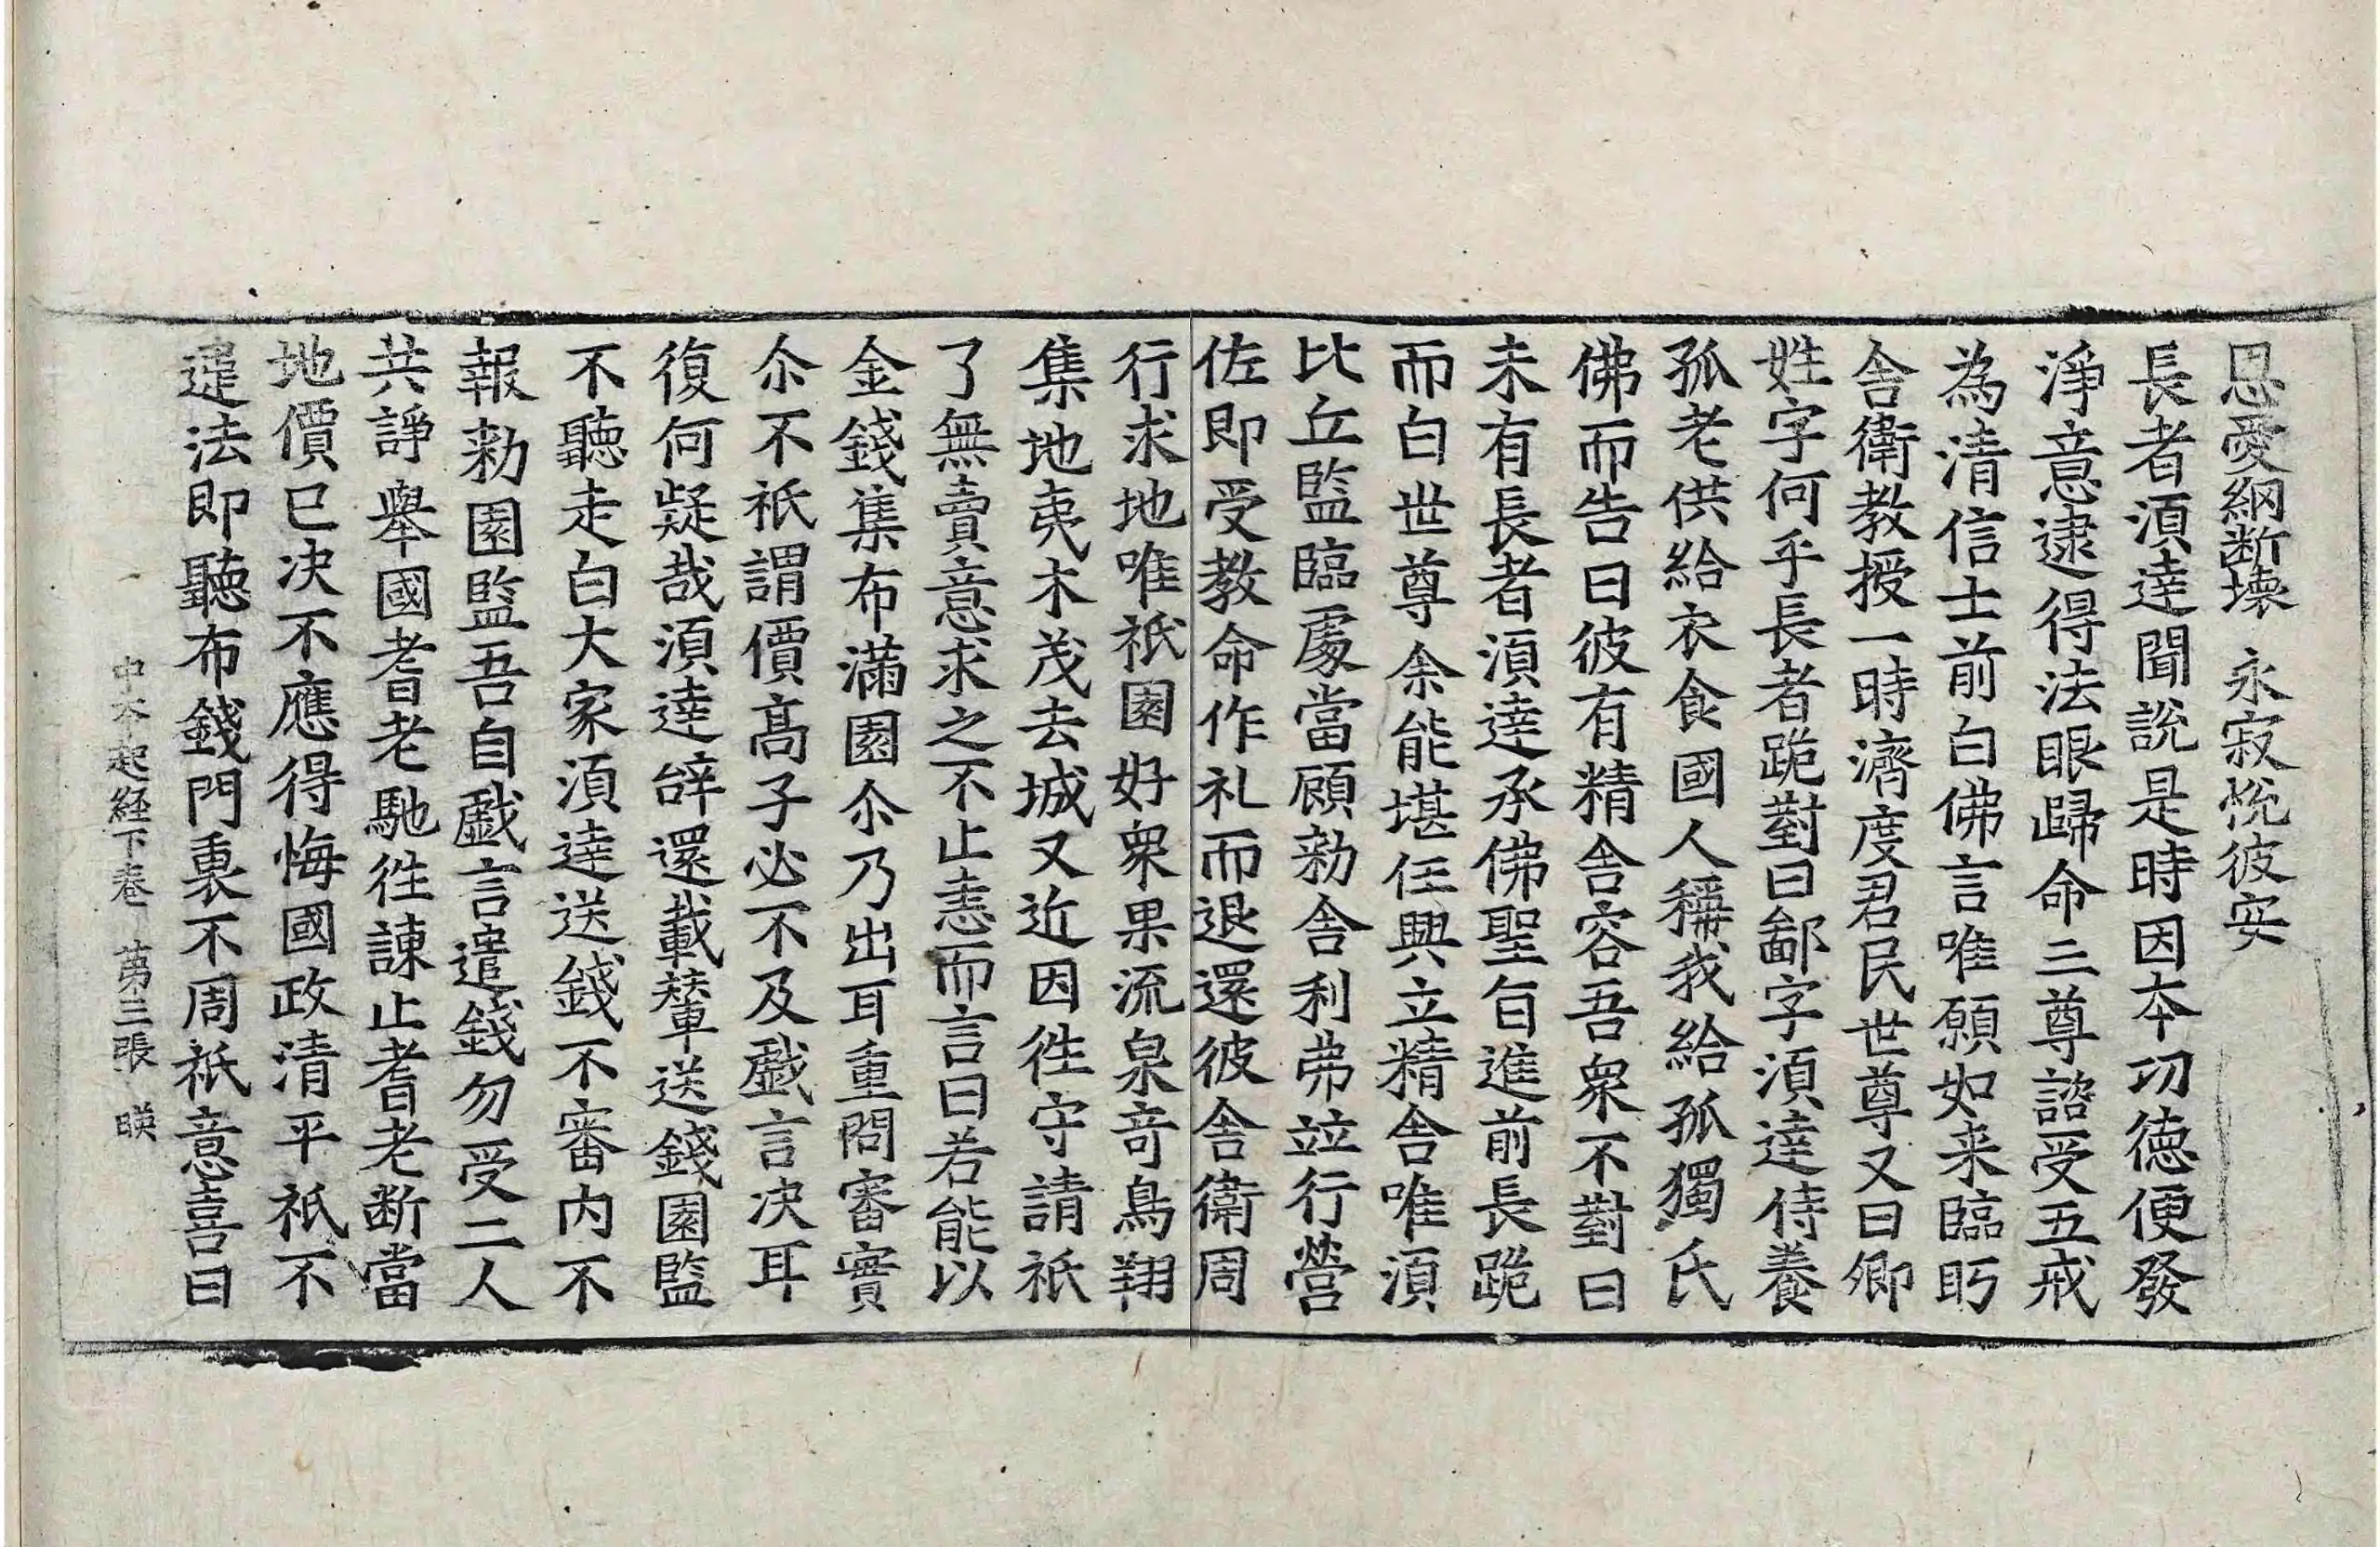 恩愛網断壊　永寂恱彼安
長者湏達聞説是時因夲功徳便發
淨意逮得法眼歸命三尊諮受五戒
為清信士前白佛言唯願如来臨眄
舎衛教授一時濟度君民世尊又曰卿
姓字何乎長者跪對曰鄙字湏達侍養
孤老供給衣食國人稱我給孤獨氏
佛而告曰彼有精舎容吾衆不對曰
未有長者湏達承佛聖旨進前長跪
而白世尊余能堪任興立精舎唯湏
比丘監臨處當顧勑舎利弗竝行營
佐即受教命作礼而退還彼舎衛周
行求地唯祇園好衆果流泉竒鳥翔
集地夷木茂去城又近因徃守請祇
了無賣意求之不止恚而言曰若能以
金錢集布滿園尒乃出耳重問審實
尒不祇謂價髙子必不及戲言决耳
復何疑哉湏達辝還載輦送錢園監
不聽走白大家湏達送錢不審内不
報勑園監吾自戲言遣錢勿受二人
共諍舉國耆老馳徃諫止耆老断當
地價已决不應得悔國政清平祇不
違法即聽布錢門裏不周祇意喜曰
中夲起経下巻　苐三張　暎